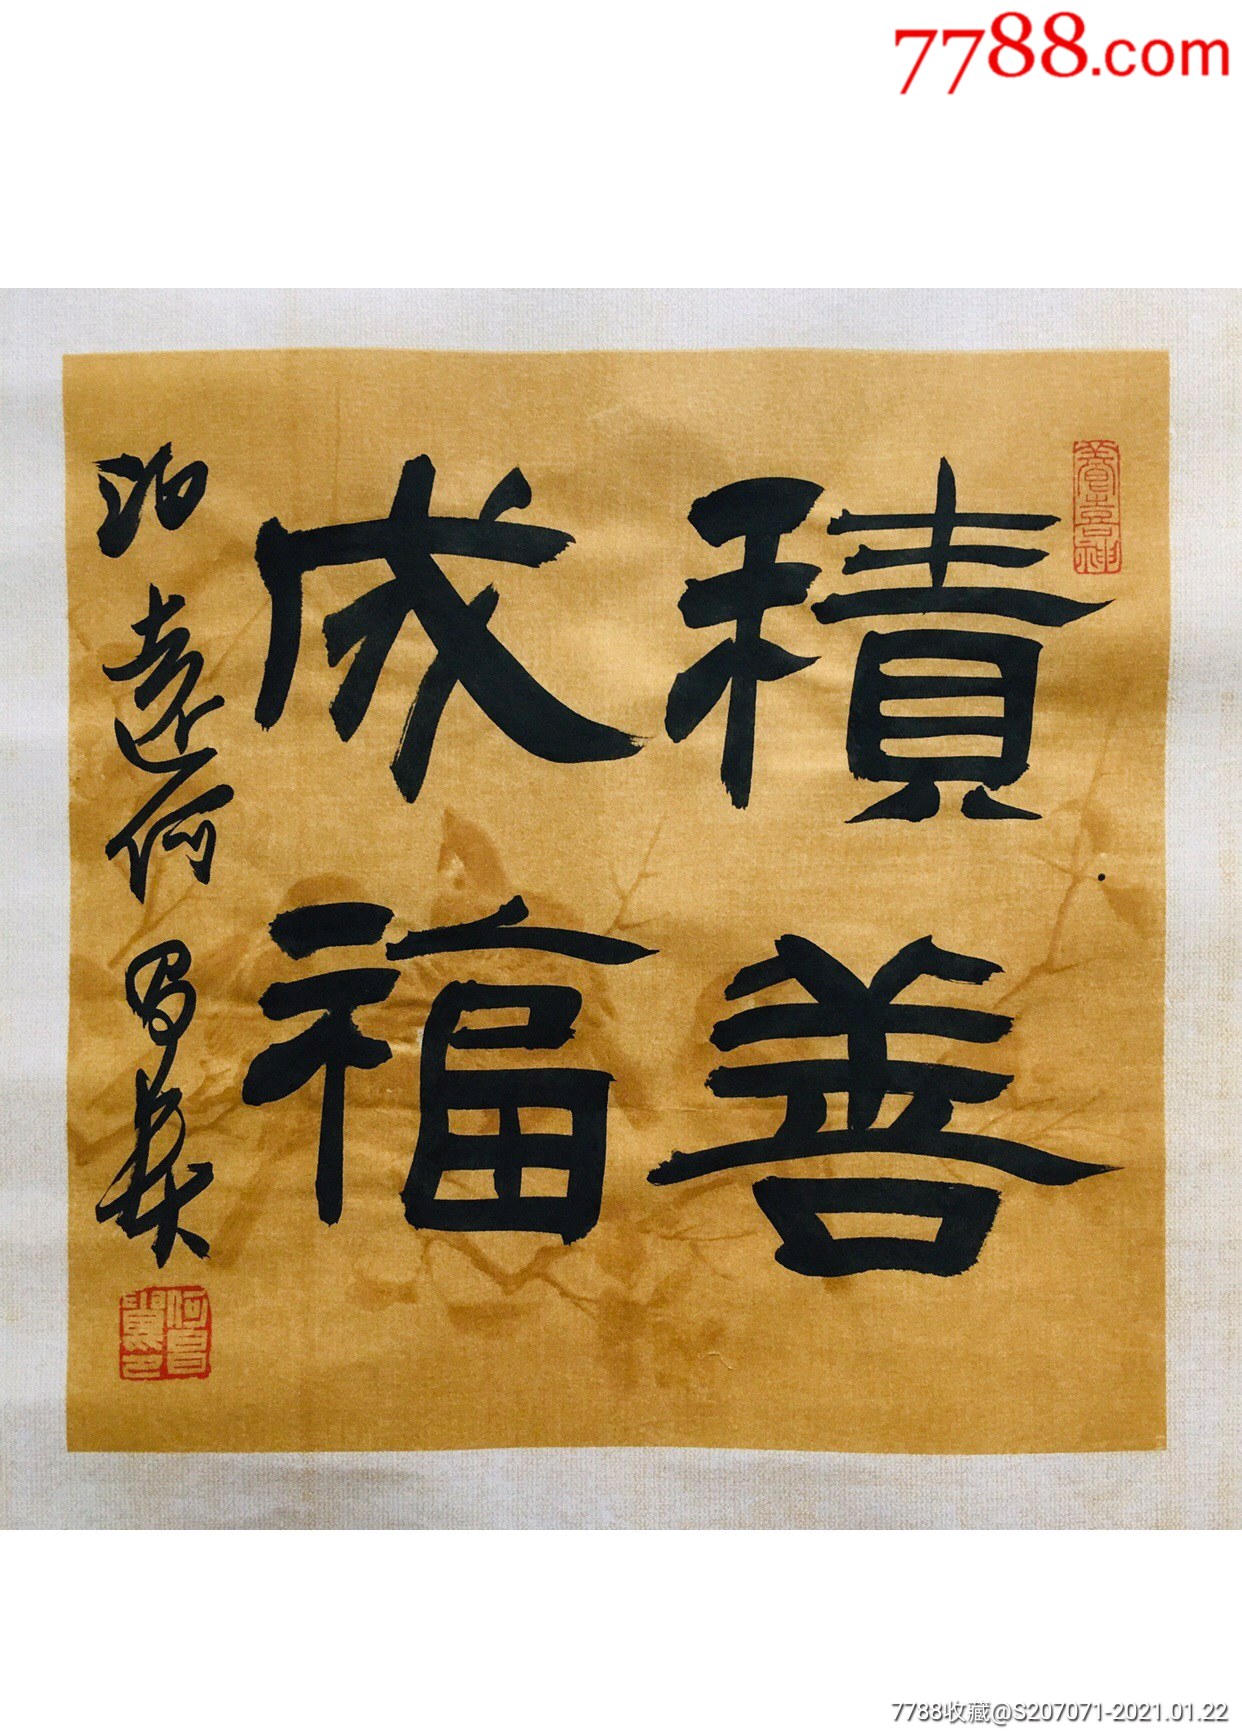 7788.com
積善
成福
泊遠何昌
養喜神
7788收藏@S207071-2021.01.22